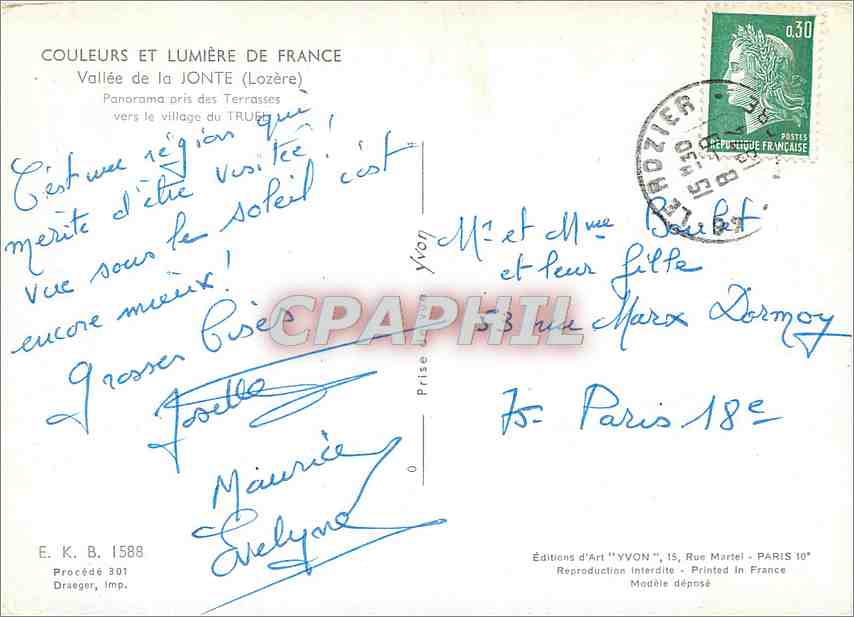 COULEURS ET LUMIÈRE DE FRANCE
Vallée de la JONTE (Lozère)
Panorama pris des Terrasses
vers le village du TRUEL
C'est une région qui
mérite d'être visitée !
vue sous le soleil c'est
encore mieux !
grosses bises
Joselle
Maurice
Evelyne
E. K. B. 1588
Procédé 301
Draeger, Imp.
Prise de vue Yvon
0,30
POSTES
REPUBLIQUE FRANÇAISE
LE ROZIER
Mr et Mme Boulet
et leur fille
53 rue Marx Dormoy
75 - Paris 18e
CPAPHIL
Éditions d'Art "YVON", 15, Rue Martel - PARIS 10e
Reproduction Interdite - Printed in France
Modèle déposé